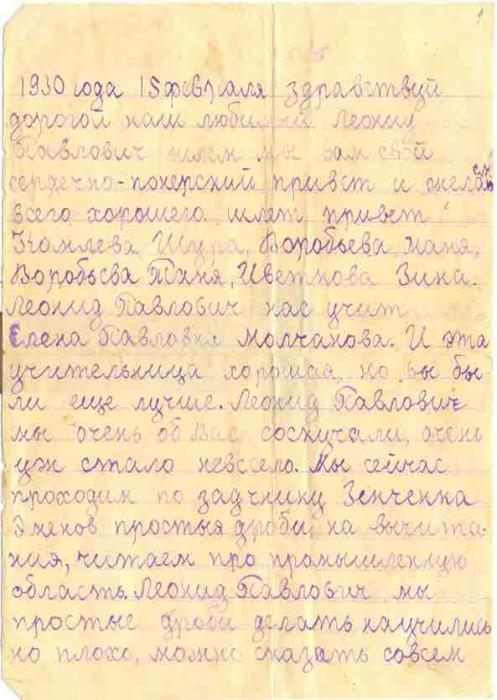 1
1930 года 15 февраля здравствуй
дорогой наш любимый Леонид
Павлович шлем мы вам свой
сердечно-понерский привет и желаем
всего хорошего. шлет привет
Шура, Воробьева Маня,
Воробьева Таня, Цветкова Зина.
Леонид Павлович нас учит
Елена Павловна Молчанова. И эта
учительница хорошая, но вы бы-
ли еще лучше. Леонид Павлович
мы очень об Вас соскучали, очень
уж стало невесело. Мы сейчас
проходим по задчнику Зенченка
Эменов простыя дроби, на вычита-
ния, читаем про промышленную
область. Леонид Павлович мы
простые дроби делать научились
но плохо, можно сказать совсем